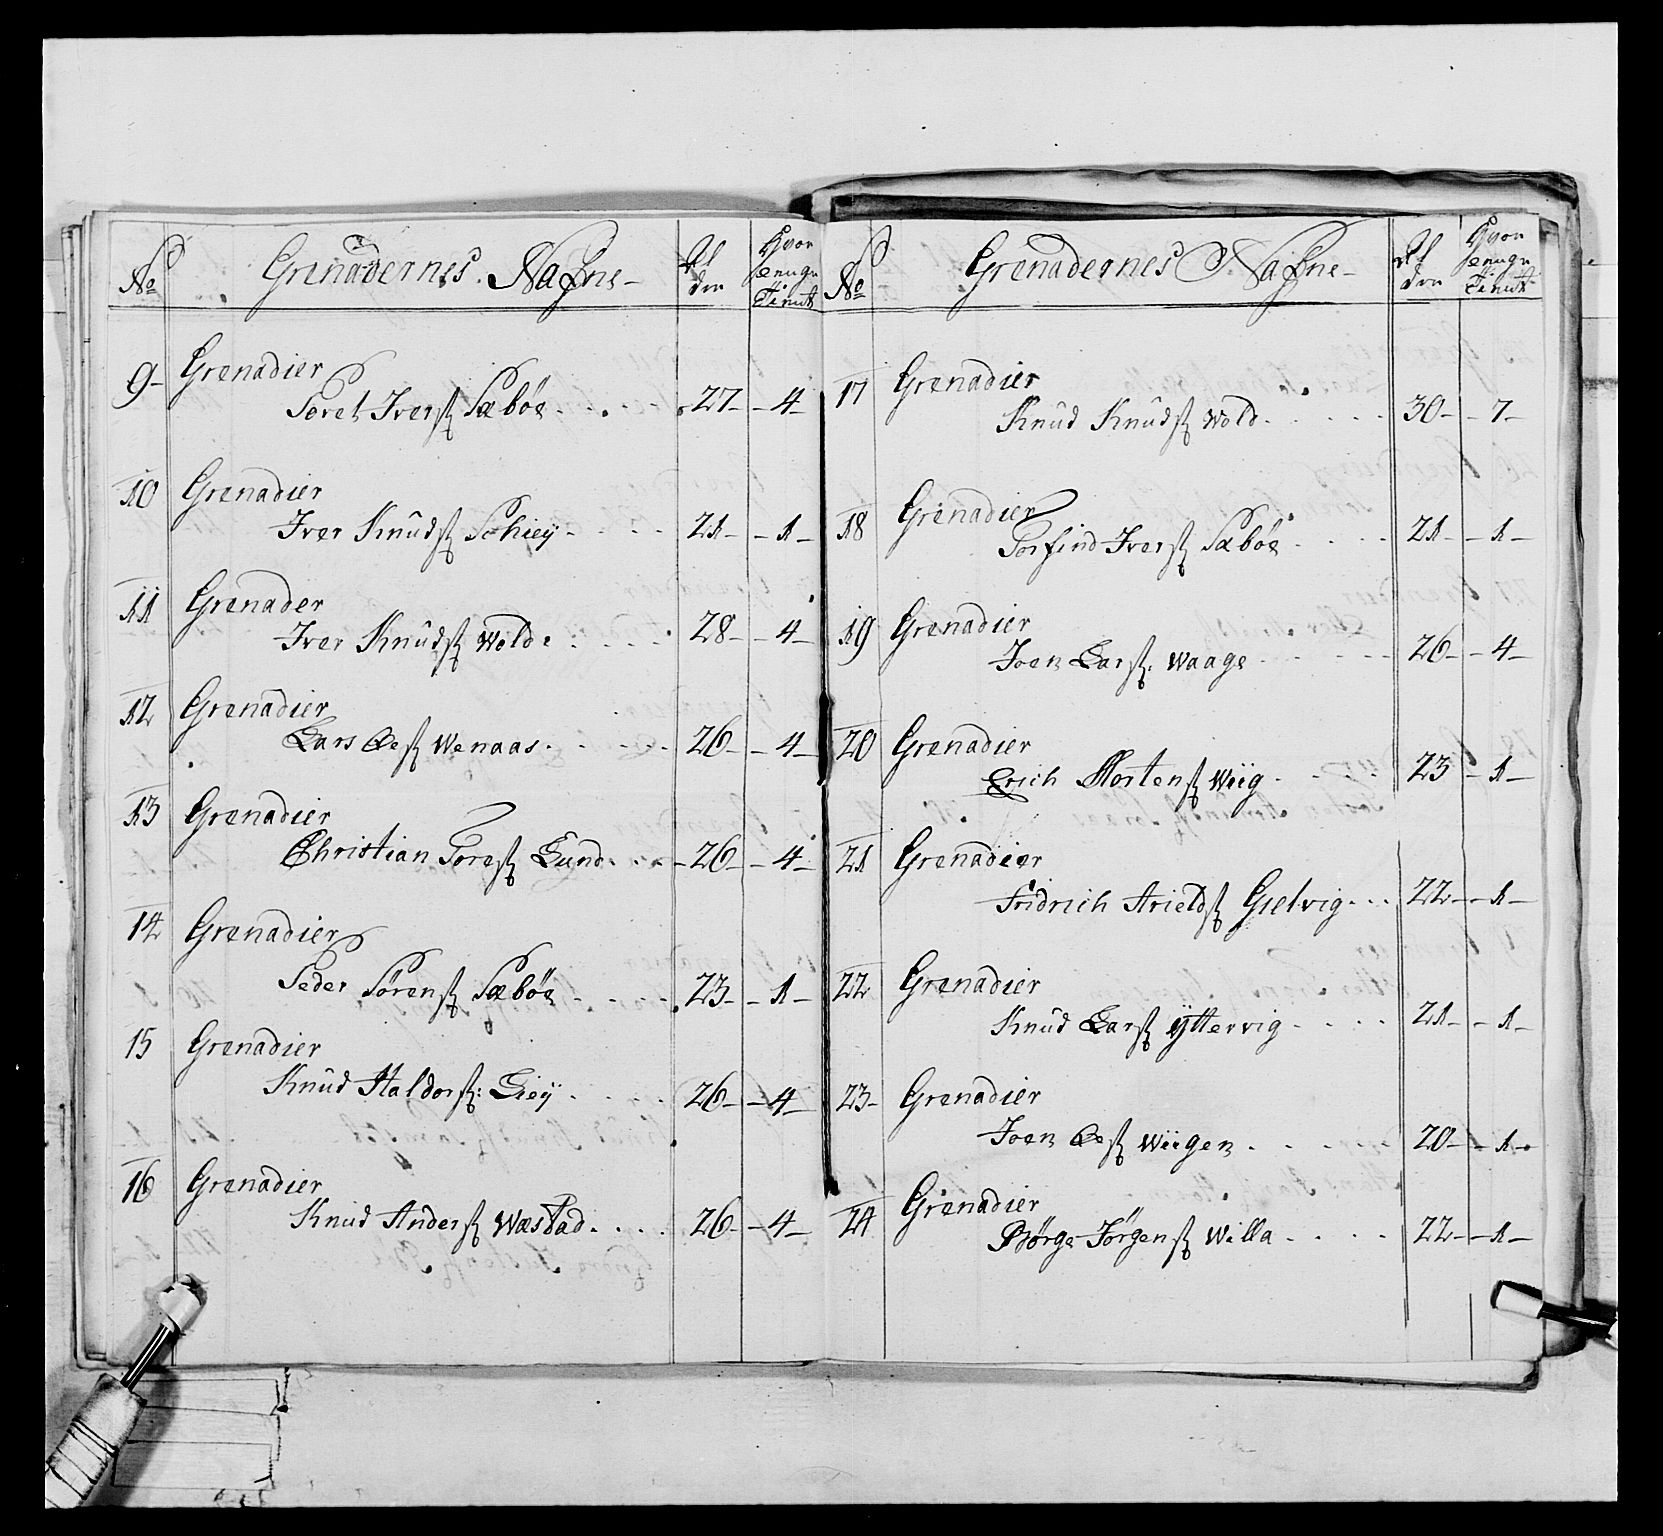 No Grenadernes Nafne Al der Hvor lenuge Tienit
9 Grenadier
Peret Iverss Sæbøe 27 4
10 Grenadier
Iver Knudss Schiey 21 1
11 Grenader
Iver Knudss Wold 28 4
12 Grenadier
Lars Oess Wenaas 26 4
13 Grenadier
Christian Toress Lund 26 4
14 Grenadier
Peder Sørenss Sæbøe 23 1
15 Grenadier
Knud Haldorss: Liey 26 4
16 Grenadier
Knud Anderss Wæstad 26 4
No Grenadernes Nafne Al der Hvor lenuge Tienit
17 Grenadier
Knud Knudss Wold 30 7
18 Grenadier
Torfind Iverss Sæbøe 21 1
19 Grenadier
Joen Larss: Waage 26 4
20 Grenadier
Erich Mortenss Wiig 23 1
21 Grenadier
Fridrich Arieldss Gielvig 22 1
22 Grenadier
Knud Larss Yttervig 21 1
23 Grenadier
Joen Oess Wiigen 20 1
24 Grenadier
Børge Jørgenss Willa 22 1